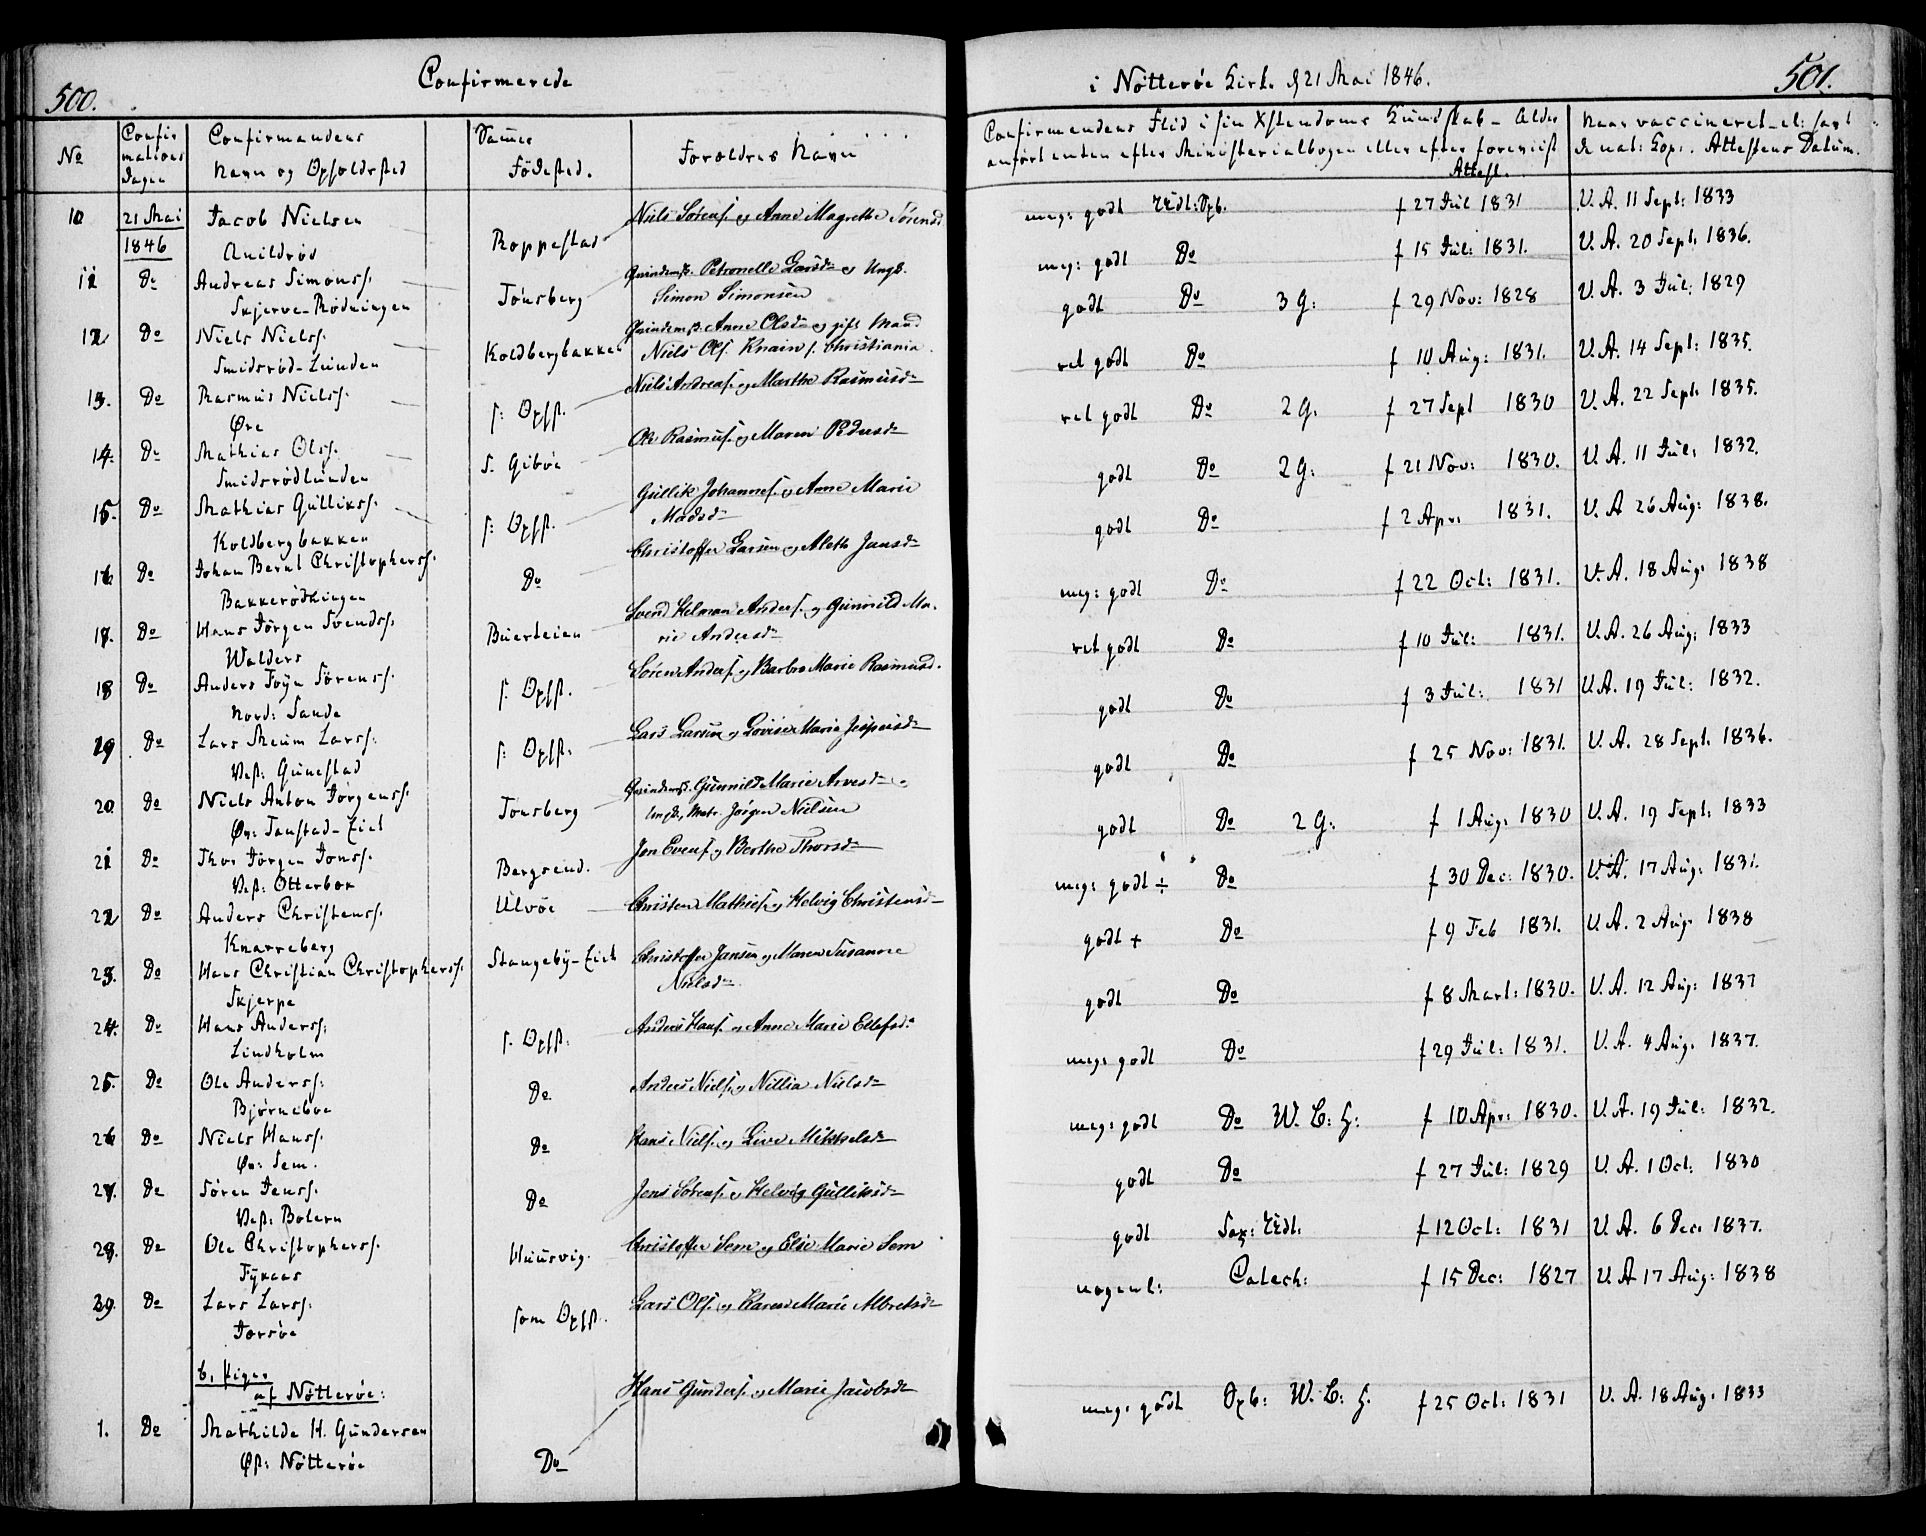 500.
Confirmerede
i Nötteröe Kirke d 21 Mai 1846.
501.
No
Confirmations Dagen
Confirmandens Navn og Opholdsted
Sammes Födested.
Foreldres Navn
Confirmandens Flid i sin Xstendoms Kundskab – Alder anfört enten efter Ministerialbogen eller efter foreviist Attest.
Naar vaccineret el: havt de nat: Kop:. Attestens Datum.
10 21 Mai 1846 Jacob Nielsen Roppestad Niels Sörens. og Anne Magrethe Sörensd meg: godt f 27 Jul 1831 V. A. 11 Sept: 1833
11 Do Andreas Simonss. Tönsberg Qvindemsk. Petronelle Larsd og Ungk. Simon Simonsen meg: godt Do f 15 Jul: 1831. V. A. 20 Sept. 1836.
Skjerve-Rödningen
12 Do Niels Nielss. Koldbergbakken Qvindemsk. Anne Olsd og gift Mand Niels Ols. Knain f. Christiania godt Do 3 G: f 29 Nov: 1828 V. A. 3 Jul: 1829
Smidsröd-Lunden
13. Do Rasmus Nielss. f: Opst. Niels Andreas. og Marthe Rasmusd ret godt Do f 10 Aug: 1831. V. A. 14 Sept: 1835.
Öre
14. Do Mathias Olss. S. Giböe Ole Rasmus. og Maren Pedersd ret godt Do 2 G. f 27 Sept 1830 V. A. 22 Sept. 1835.
Smidsrödlunden
15. Do Mathias Gulliks. f: Opst. Gullik Johannes. og Anne Marie Madsd godt Do 2 G: f 21 Nov: 1830. V. A. 11 Jul: 1832.
Koldbergbakken
16 Do Johan Bernt Christophers. Do Christoffer Larsen og Alethe Jansd godt Do f 2 Apr: 1831. V. A 26 Aug: 1838.
Bakkerödningen
17. Do Hans Jörgen Svendss. Buerleien Svend Helman Anders. og Gunnild Marie Andersd meg: godt Do f 22 Oct: 1831. V. A. 18 Aug: 1838
Walders
18 Do Anders Foyn Sörens. f. Opst. Sören Anders. og Barbro Marie Rasmusd. ret godt Do f 10 Jul: 1831. V. A. 26 Aug: 1833
Nord: Sande
19 Do Lars Meum Larss. f: Opst: Lars Larsen og Lovise Marie Jespersd godt Do f 3 Jul: 1831 V. A. 19 Jul: 1832.
Vest: Gunestad
20. Do Niels Anton Jörgenss. Tönsberg Qvindemsk. Gunnild Marie Arvesd og Ungk. Matr. Jörgen Nielsen godt Do f 25 Nov: 1831. V. A. 28 Sept. 1836.
Öv: Tanstad-Eiet
21 Do Thor Jörgen Jonss. Bergsend. Jon Evens. og Berthe Thorsd godt Do 2 G: f 1 Aug: 1830 V. A. 19 Sept. 1833
Vest: Otterbek
22 Do Anders Christens. Ulvöe Christen Mathies. og Helvig Christensd meg: godt ÷ Do f 30 Dec: 1830. V. A. 17 Aug: 1831.
Knarreberg
23. Do Hans Christian Christopherss. Stangeby-Eiet Christoffer Jansen og Maren Susanne Nielsd godt + Do f 9 Feb 1831. V. A. 2 Aug. 1838
Skjerpe
24. Do Hans Anders. f. Opst: Anders Hans. og Anne Marie Ellefsd. godt Do f 8 Mart: 1830. V. A. 12 Aug: 1837
Lindholm
25. Do Ole Anders. Do Anders Niels. og Nillia Nielsd meg: godt Do f 29 Jul: 1831. V. A. 4 Aug. 1837.
Björneboe
26 Do Niels Hanss. Do Hans Niels. og Live Mikkelsd meg: godt Do W. B: H: f 10 Apr: 1830. V. A. 19 Jul: 1832.
Öv: Sem.
27. Do Sören Jenss. Do Jens Sörens. og Helvig Gulliksd godt Do f 27 Jul: 1829 V. A. 1 Oct: 1830
Vest: Bolern
28. Do Ole Christopherss. Huusvig. Christoffer Sem og Else Marie Sem godt f 12 Oct: 1831 V. A. 6 Dec. 1837.
29. Do Lars Larss. som Opst. Lars Ols. og Karen Marie Albretsd Catech: f 15 Dec: 1827 V. A 17 Aug: 1838
b, Piger
af Nötteröe:
1. Do Mathilde H. Gundersen Do Hans Gunders. og Marie Jacobsd meg: godt Opb: W. B: H. f 25 Oct: 1831 V. A. 18 Aug. 1833
Öst: Nötteröe